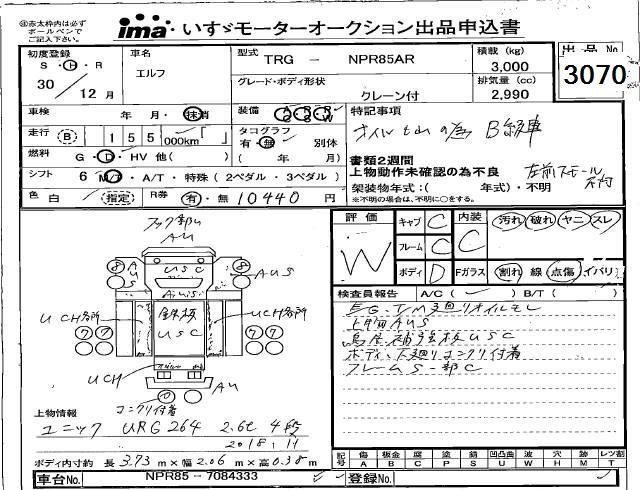 ※赤太枠内は必ず
ボールペンで
ご記入下さい。
ima いすゞモーターオークション出品申込書
初度登録
S・H・R
30 / 12 月
車名
エルフ
型式 TRG - NPR85AR
グレード・ボディ形状
クレーン付
積載 (kg)
3,000
排気量 (cc)
2,990
出品 No
3070
車検 年 月・抹消
走行 B 155 000km「 」
燃料 G・D・HV 他( )
シフト 6 M/T・A/T・特殊 (2ペダル・3ペダル)
色 白 / 指定 R券 有・無 10440 円
装備
タコグラフ
有・無 別体
( 年 月)
特記事項
オイルもれの為 B級車
書類2週間
上物動作未確認の為不良
架装物年式:( 年式)・不明
※不明の場合は、不明に○をする。
評価
W
キャブ C
フレーム C
ボディ D
内装 C
Fガラス
汚れ 破れ ヤニ スレ
割れ 線 点傷 イバリ
検査員報告 A/C( ✓ ) B/T( )
E/G、T/M廻りオイルモレ
上物AUS
鳥居補強板USC
ボディ、下廻りコンクリ付着
フレームS一部C
フック部ム
AU
USC
AUS
AUS
UCH各所
UCH各所
鉄板
USC
UCH
AU
コンクリ付着
8
8
7 7
7 7
上物情報
ユニック URG264 2.6t 4段
2018.11
ボディ内寸約 長 3.73 m×幅 2.06 m×高 0.38 m
記号 傷 A 板金 B 腐 C 塗 P 錆 S 凹凸曲 U 波 W 穴 H 跡 M レツ割 T
車台No. NPR85-7084333
登録No.